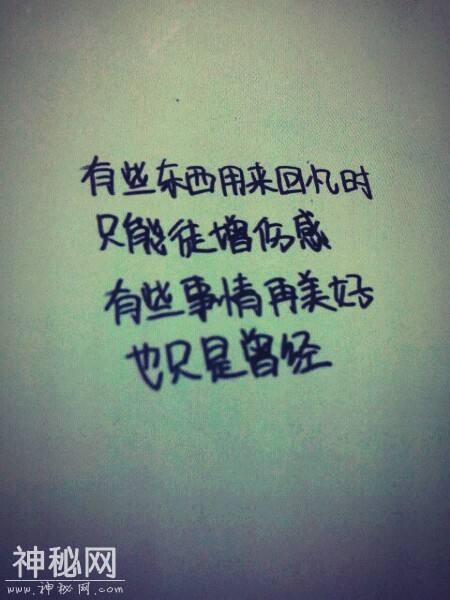 有些东西用来回忆时
只能徒增伤感
有些事情再美好
也只是曾经
神秘网
www.神秘网.com